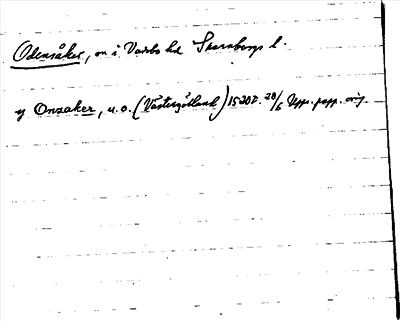 Odensåker, sn i Vadsbo hd Skaraborgs l.
y Onzaker, u.o. (Västergötland) 1520 t. 28/6 Upps. papp. orig.